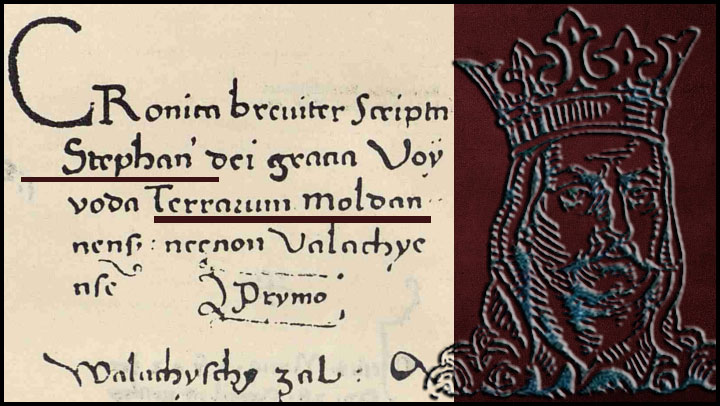 CRonica breuiter Scripta
Stephan' dei gracia Voÿ
voda Terrarum Moldan
nens: necnon Valachye
nse
Prymo
Walachysch zal: